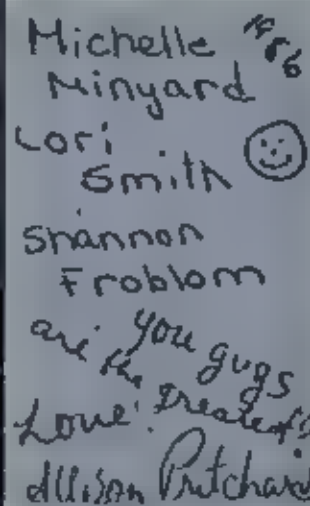 Michelle 1986
Minyard
Lori
Smith
Shannon
Froblom
you guys
are the greatest
Love!
Allison Pritchard